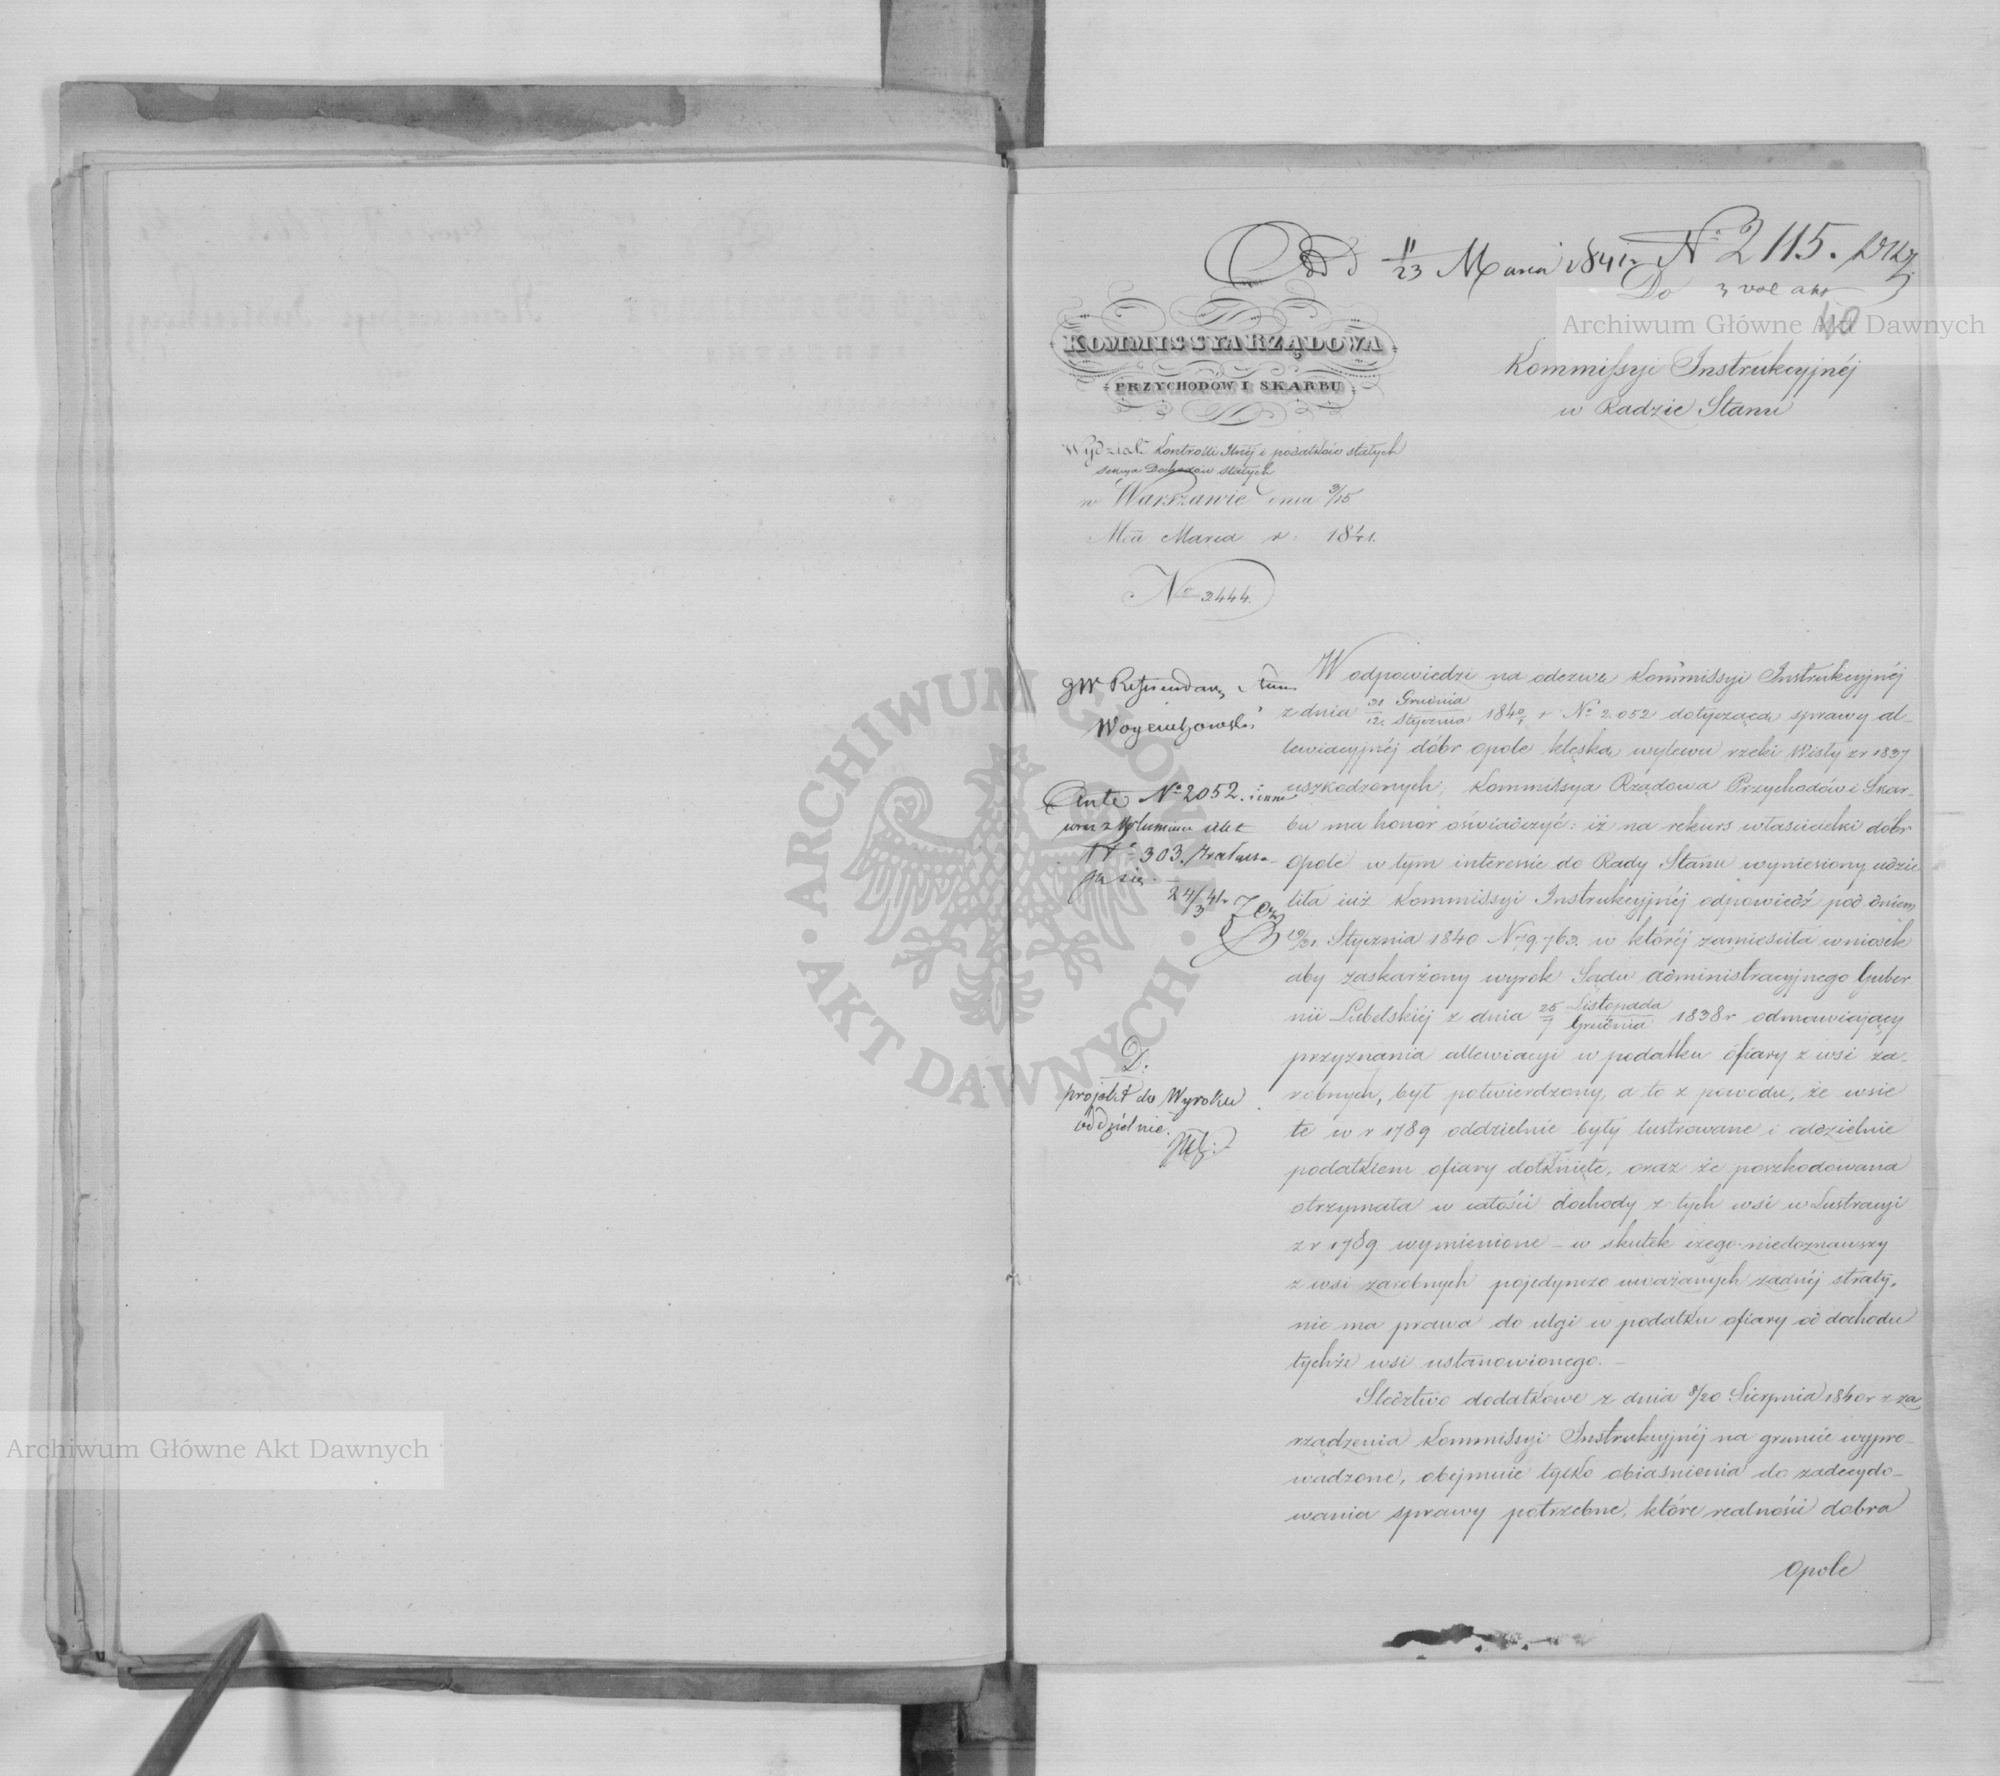 Odd 11/23 Marca 1841 r. Nº 2115.
Do 3 vol akt
40
KOMMISSYA RZĄDOWA
PRZYCHODÓW I SKARBU
Kommissyi Instrukcyjnéj
w Radzie Stanu
Wydział Kontrolli i podatków stałych
Sekcya Dochodów stałych
w Warszawie dnia 3/15
Mca Marca r. 1841.
No 2444.
JW Referendarz Stanu
Woyciechowski
Ante Nº 2052. i inne
wraz z Volumina
Nº 303. załącza
ją się.
24/3 41.
D:
projekt do Wyroku
oddzielnie.
W odpowiedzi na odezwę Kommissyi Instrukcyjnéj
z dnia 31 Grudnia / 12 Stycznia 1840/1 r Nº 2052 dotyczącą sprawy al-
lewiacyjnéj dóbr Opole klęską wylewu rzeki Wisły z r 1837
uszkodzonych, Kommissya Rządowa Przychodów i Skar-
bu ma honor oświadczyć: iż na rekurs właścicielki dóbr
Opole w tym interessie do Rady Stanu wyniesiony udzie
liła już Kommissyi Instrukcyjnéj odpowiedź pod dniem
19/31 Stycznia 1840 N 79.763. w któréj zamieściła wniosek
aby zaskarżony wyrok Sądu administracyjnego Guber
nii Lubelskiéj z dnia 25 Listopada / 7 Grudnia 1838 r odmawiający
przyznania allewiacyi w podatku ofiary z wsi za-
robnych, był potwierdzony, a to z powodu, że wsie
te w r 1789 oddzielnie były lustrowane i oddzielnie
podatkiem ofiary dotknięte, oraz że poszkodowana
otrzymała w całości dochody z tych wsi w Lustracyi
z r 1789 wymienione – w skutek czego niedoznawszy
z wsi zarobnych pojedynczo uważanych żadnéj straty,
nie ma prawa do ulgi w podatku ofiary od dochodu
tychże wsi ustanowionego. –
Śledztwo dodatkowe z dnia 8/20 Sierpnia 1840 r z za
rządzenia Kommissyi Instrukcyjnéj na gruncie wypro-
wadzone, obejmuie tylko obiaśnienia do zadecydo-
wania sprawy potrzebne, które realności dobra
Opole
Archiwum Główne Akt Dawnych
Archiwum Główne Akt Dawnych
ARCHIWUM GŁÓWNE · AKT DAWNYCH ·